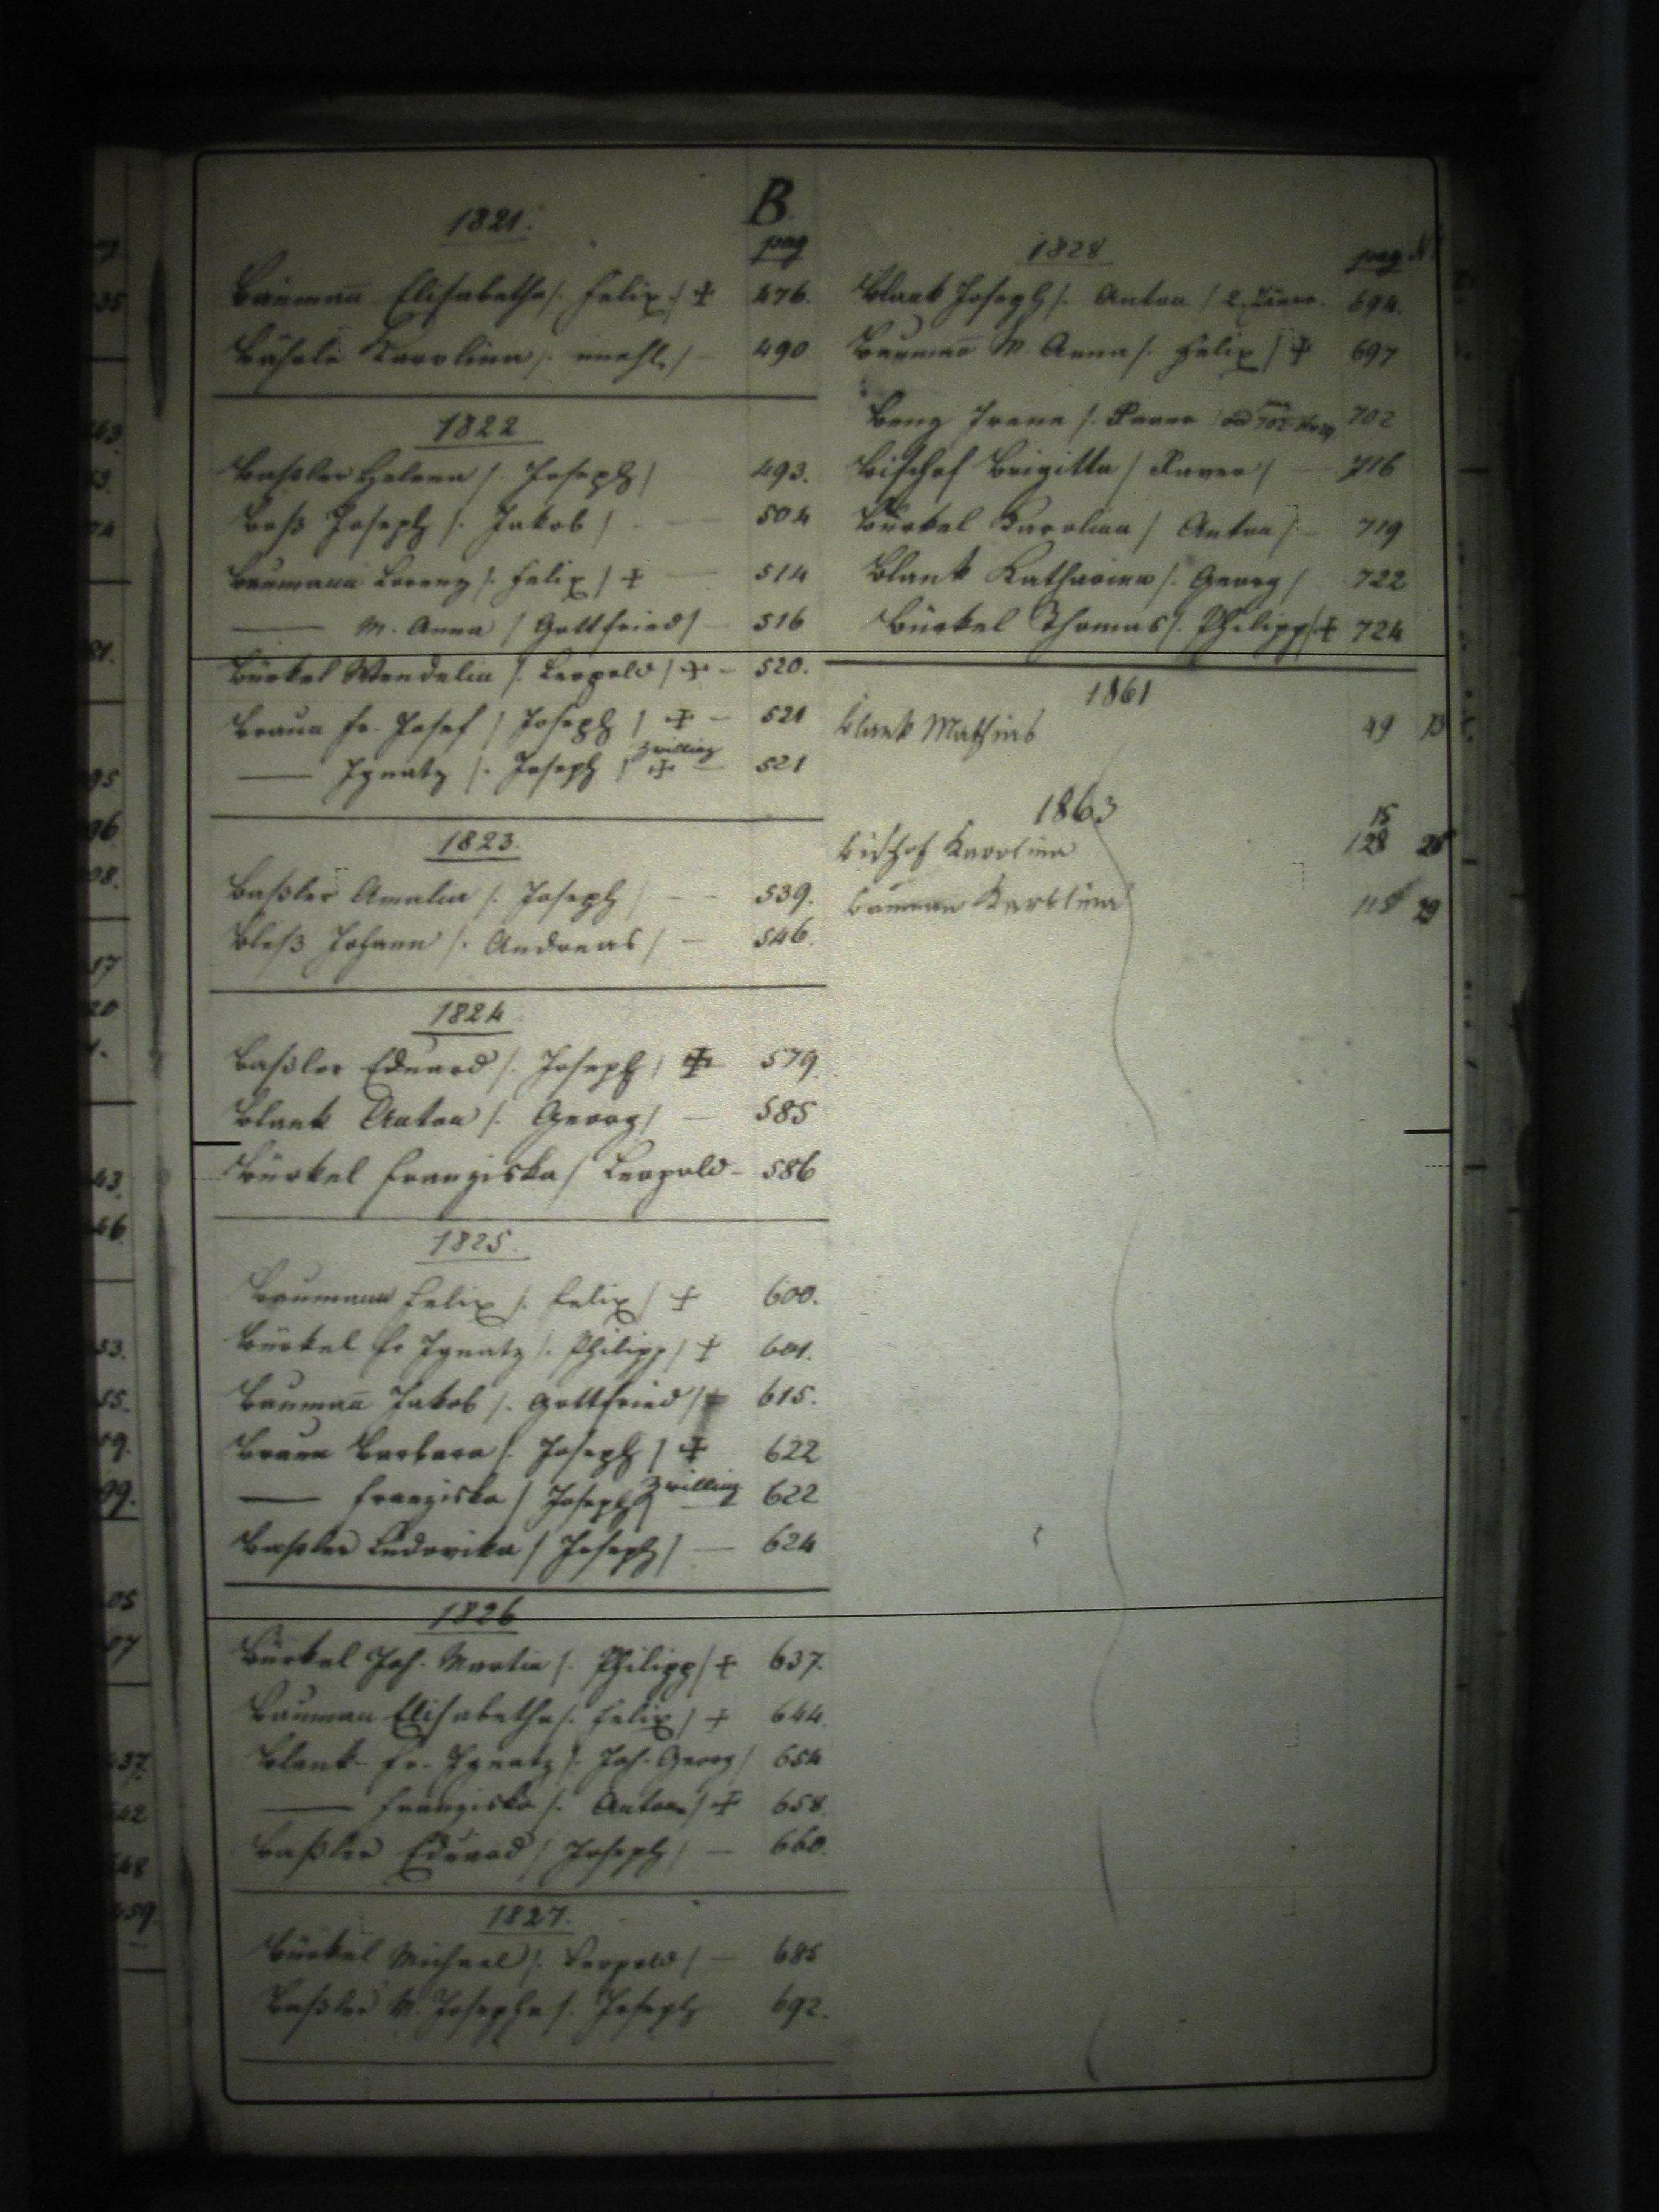 B
1821.
pag
Bauman̄ Elisabetha /. Felix ./ + 476.
Bäsele Karolina /. unehl. / — 490
1822
Baßler Helena /. Joseph / 493.
Boß Joseph /. Jakob / — 504
Baumann Lorenz /. Felix / + — 514
— M. Anna / Gottfried / — 516
Bürkel Wendelin /. Leopold / + — 520.
Braun Fr. Josef / Joseph / + — 521
— Ignatz /. Joseph / Zwilling + — 521
1823.
Baßler Amalia /. Joseph / — 539.
Bleß Johann /. Andreas / — 546.
1824
Baßler Eduard /. Joseph / + 579.
Blank Anton /. Georg / — 585
Bürkel Franziska / Leopold — 586
1825.
Baumann Felix /. Felix / + 600.
Bürkel Fr Ignatz /. Philipp / + 601.
Bauman̄ Jakob /. Gottfried / + 615.
Braun Barbara /. Joseph / + 622
— Franziska / Joseph / Zwilling — 622
Baßler Ludovika / Joseph / — 624
1826
Bürkel Joh. Martin /. Philipp / + 637.
Bauman Elisabetha /. Felix / + 644.
Blank Fr. Ignatz /. Joh. Georg / 654
— Franziska /. Anton / + 658.
Baßler Eduard / Joseph / — 660.
1827.
Bürkel Michael /. Leopold / — 685
Baßler M. Josepha /. Joseph 692.
1828
pag
Blank Joseph /. Anton / 694.
Bauman̄ M. Anna /. Felix / + 697
Benz Irena /. Xaver / 702
Bischof Brigitta / Xaver / — 716
Bürkel Karolina / Anton /. — 719
Blank Katharina /. Georg / 722
Bürkel Thomas /. Philipp / + 724
1861
Blank Mathias 49 13
1863
15
Bischof Karolina 128
Bauman Karolina 29